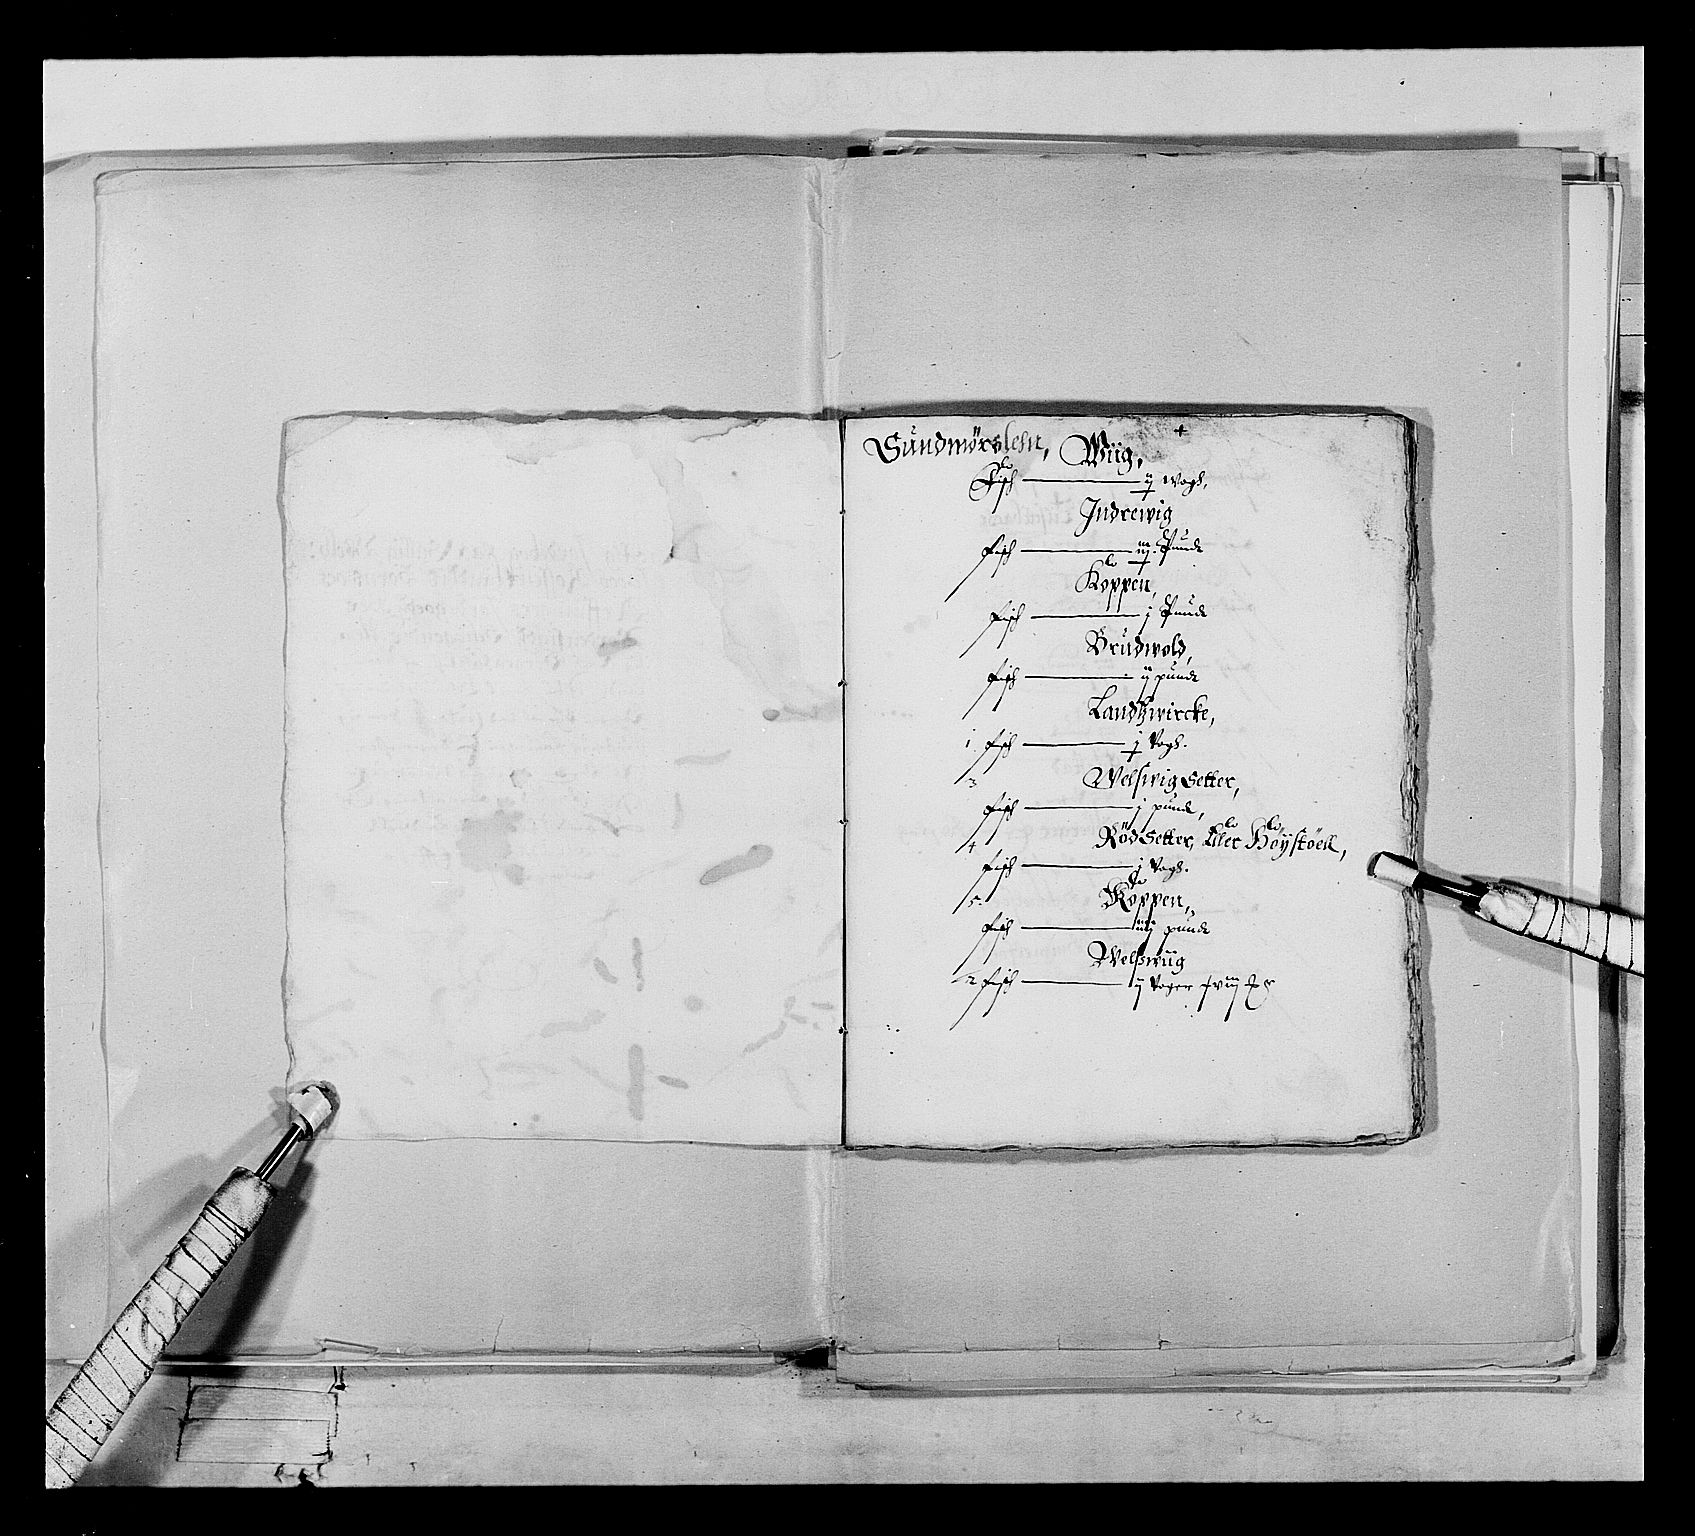 Sundmørslehn, Wiig,
Fisch — ij wogh,
Indrewig
Fisch — iij Punde
Koppen,
Fisch — j Punde
Brudwold,
Fisch — ij punde
Landhwircke,
1 Fisch — j Vogh.
3 Welswig Setter,
Fisch — j punde,
4 Rödsetter, Høystøell,
Fisch — j Vogh.
5 Koppen,
Fisch — iiij punde
Welswiig
2 Fisch — ij Voger